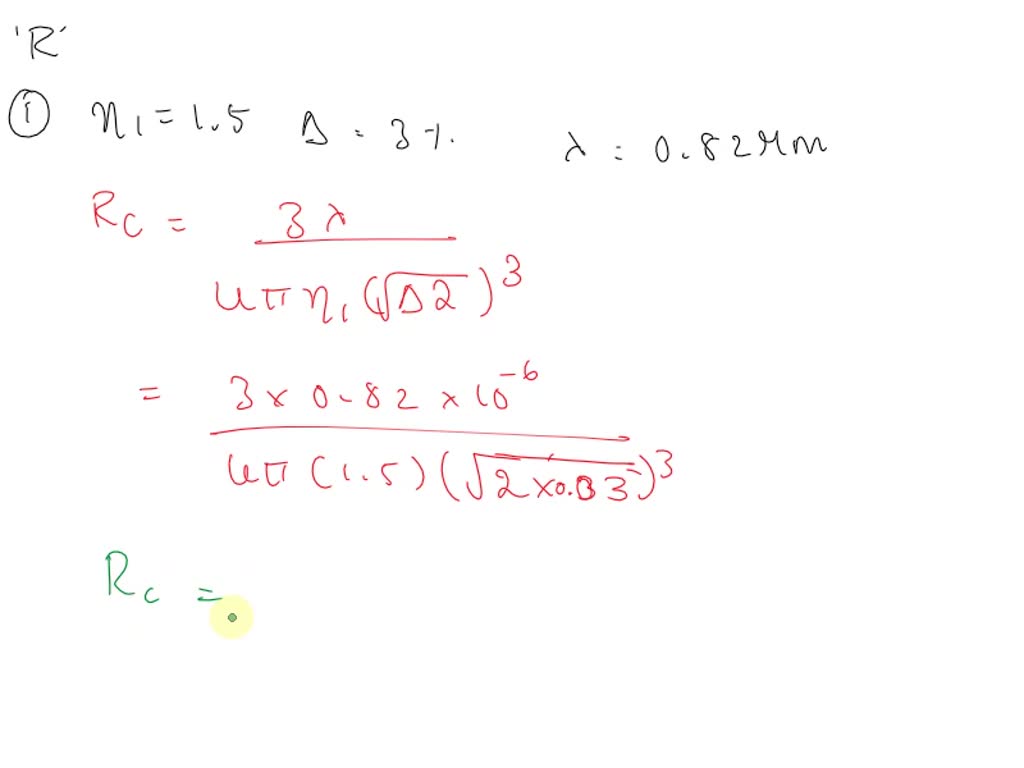 'R'
① η1 = 1.5 Δ = 3%. λ = 0.82 μm
Rc = 3λ
4π η1 (√Δ2)^3
= 3 × 0.82 × 10^-6
4π (1.5) (√2×0.03)^3
Rc =